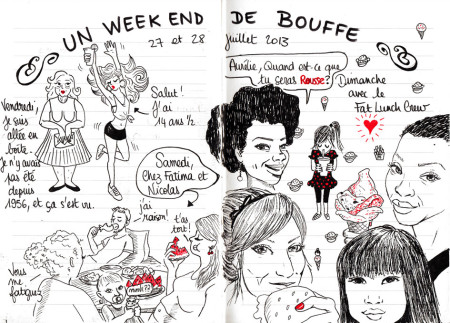 UN WEEK END DE BOUFFE
27 et 28 Juillet 2013
Vendredi,
je suis
allée en
boîte.
Je n'y avais
pas été
depuis
1956, et ça s'est vu.
Salut!
J'ai
14 ans ½
Samedi,
Chez Fatima et
Nicolas
j'ai
raison!
t'as
tort!
Vous
me
fatiguez
Aurélie, Quand est-ce que
tu seras Rousse?
Dimanche
avec le
Fat Lunch Crew